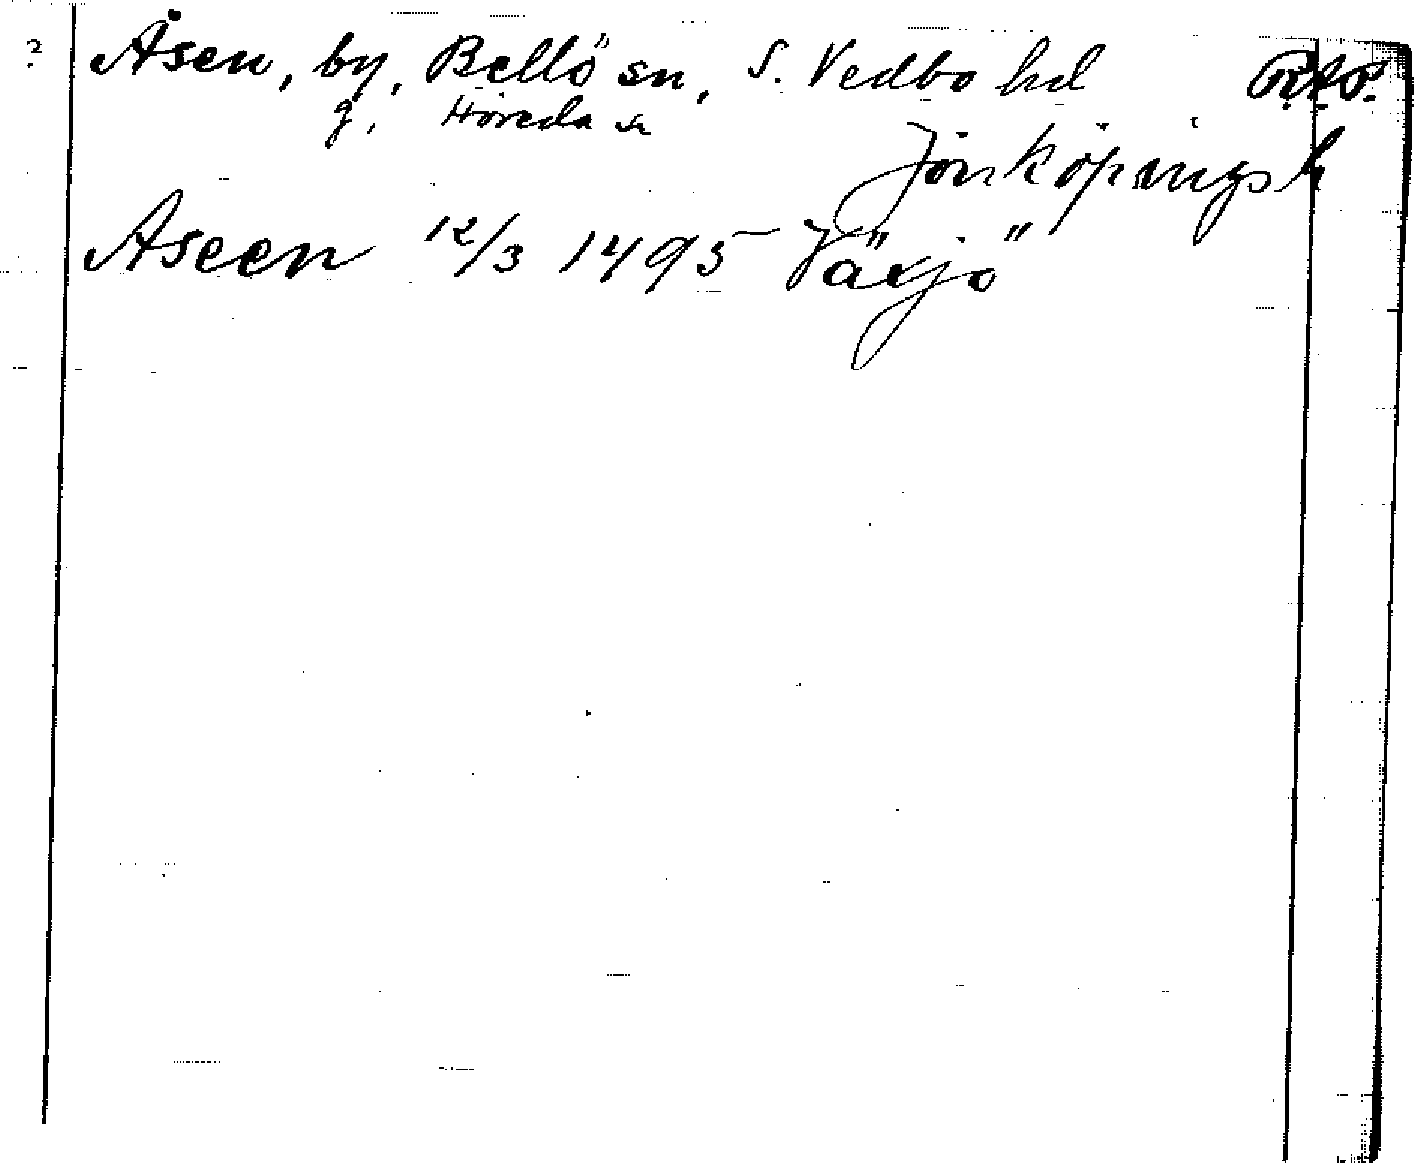 ? Åsen, by, Bellö sn, S. Vedbo hd RAP.
g, Höreda sn
Jönköpings l
Aseen 12/3 1495 Växjö